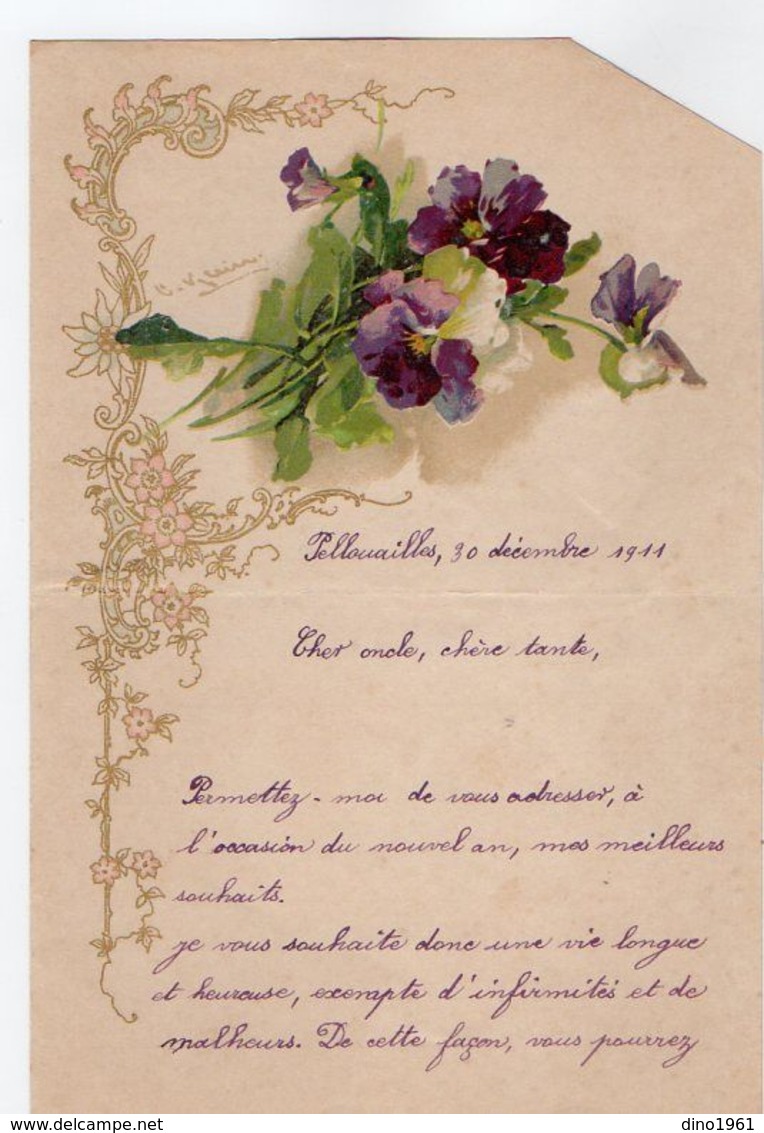 C. Klein.
Pellouailles, 30 décembre 1911
Cher oncle, chère tante,
Permettez-moi de vous adresser, à
l'occasion du nouvel an, mes meilleurs
souhaits.
Je vous souhaite donc une vie longue
et heureuse, exempte d'infirmités et de
malheurs. De cette façon, vous pourrez
delcampe.net
dino1961